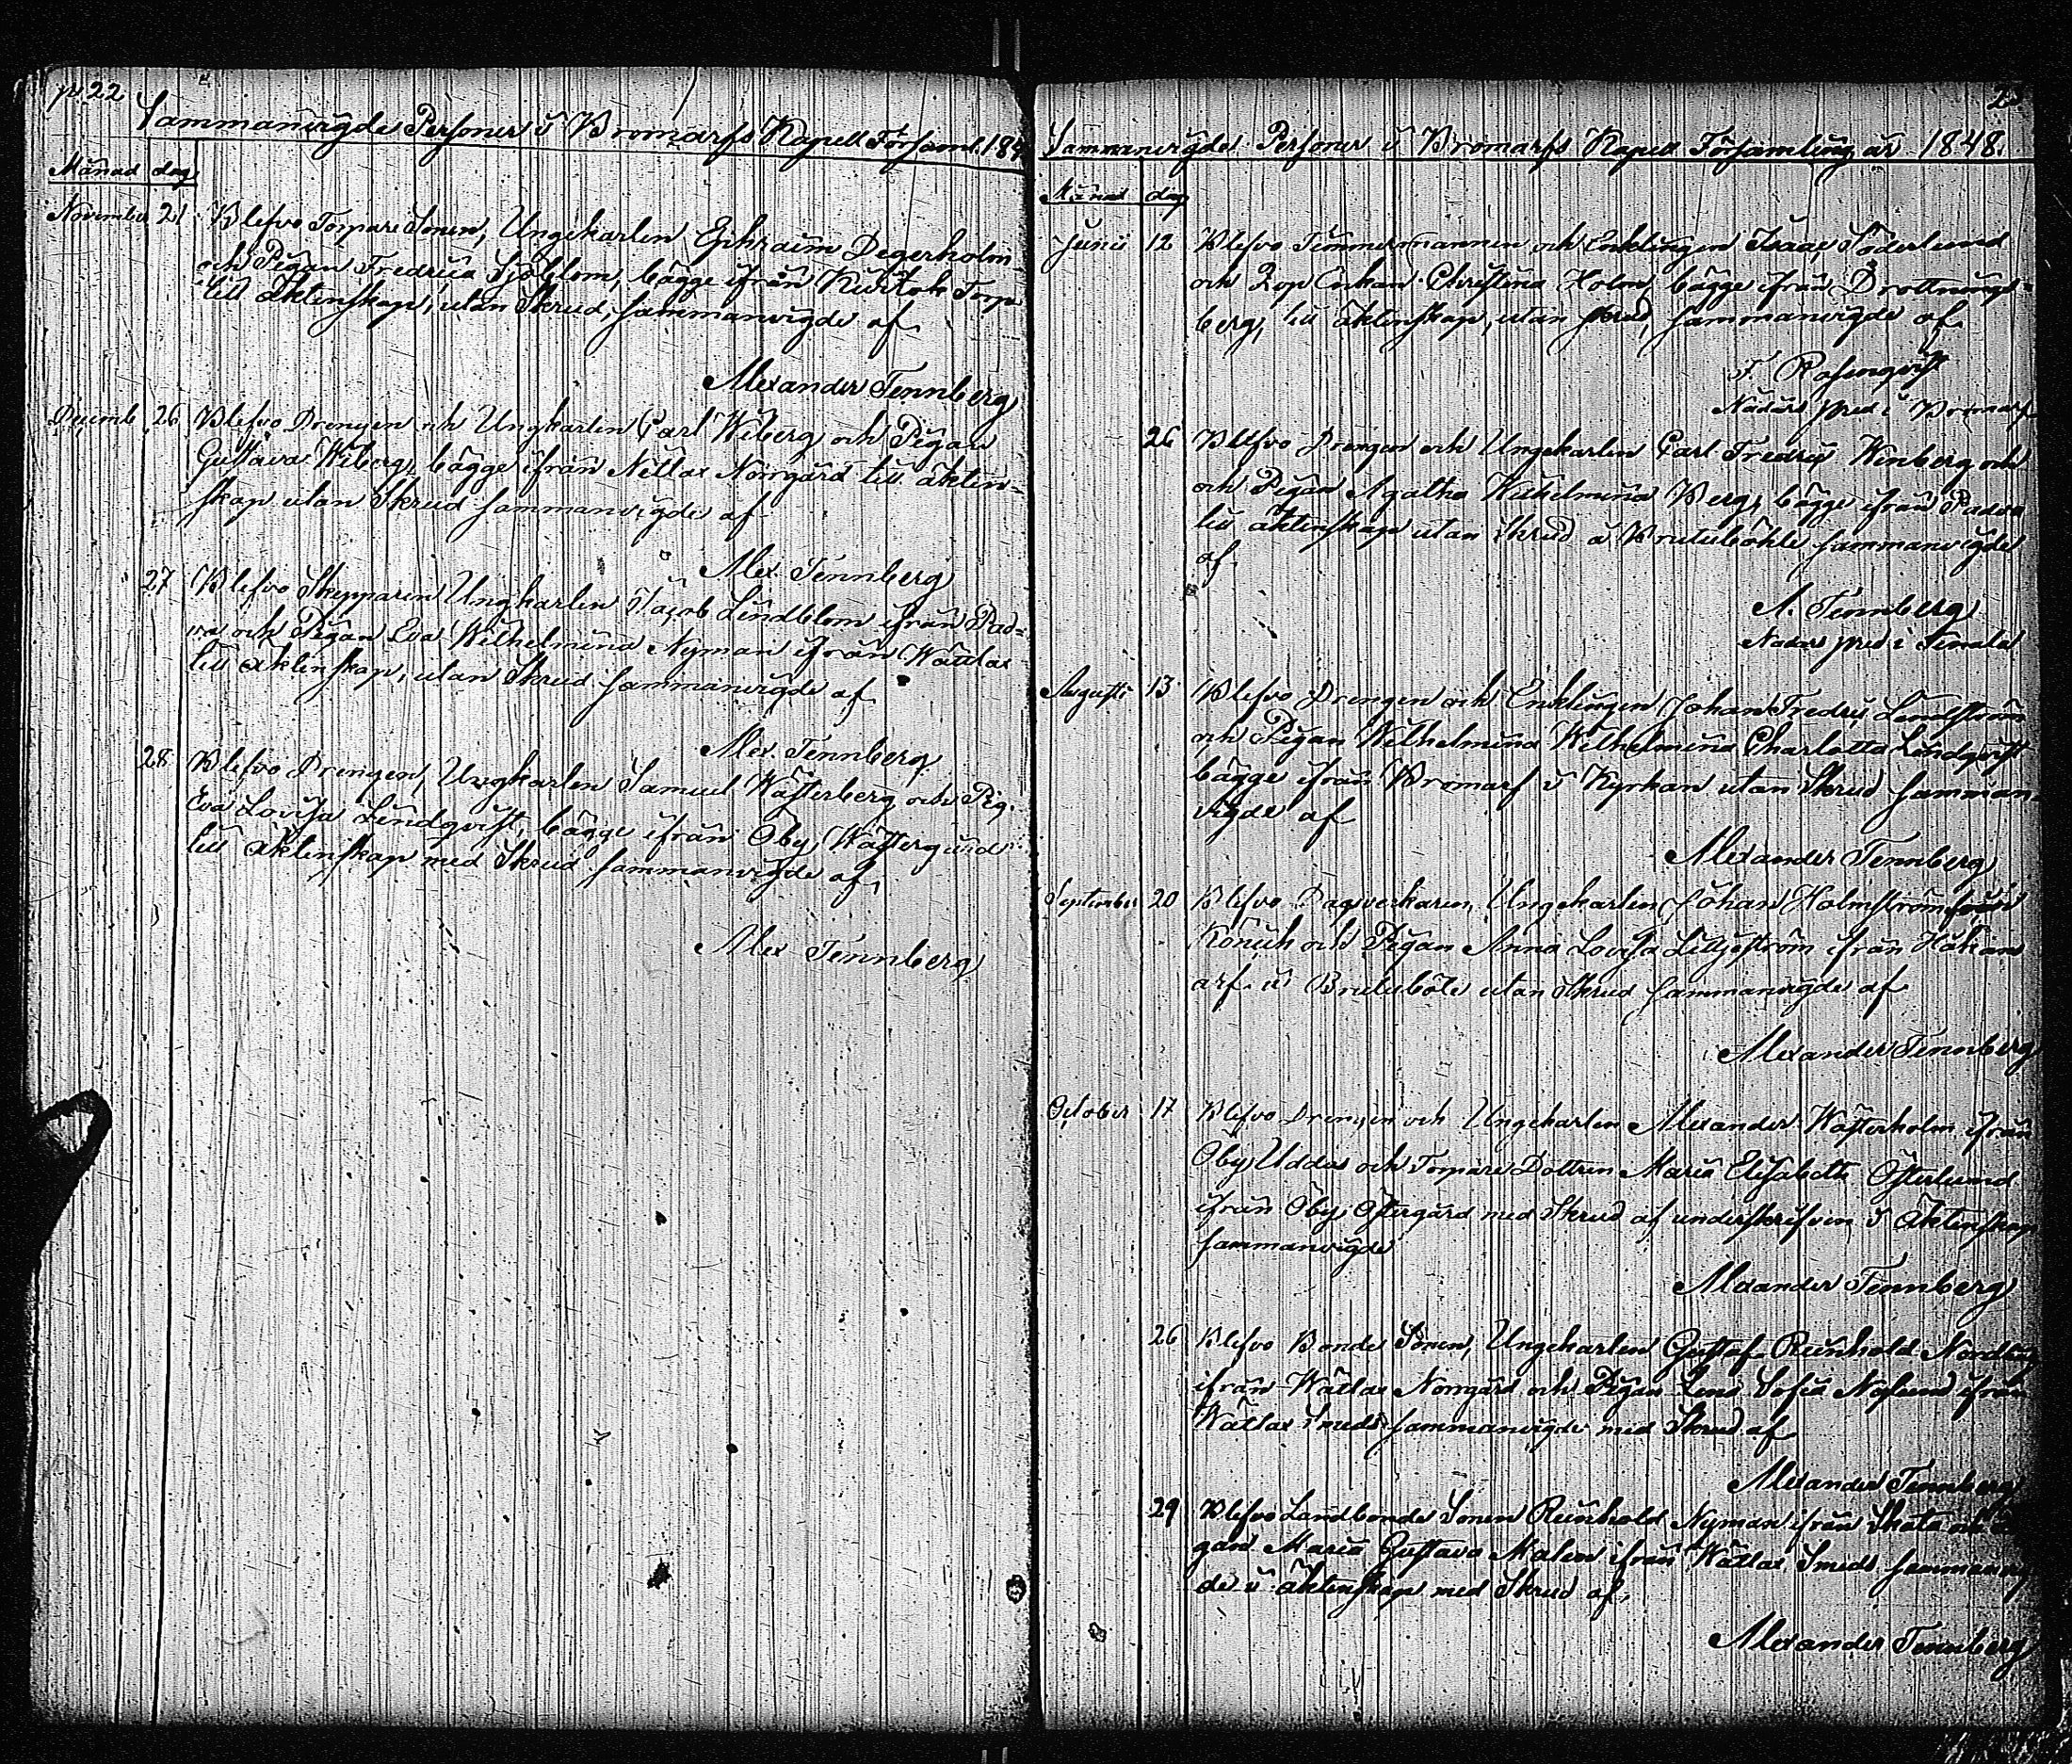 p. 22
Sammanvigde Personer i Bromarfs Kapell Församl. 184
Månad dag
November 21 Blefvo Torpare Sonen, Ungekarlen Ephraim Degerholm
och Pigan Fredrica Sjöblom, bägge ifrån Torp
till äktenskap, utan Skrud, sammanvigde af
Alexander Tennberg
Decemb 26 Blefvo Drengen och Ungkarlen Carl Wiberg och Pigan
Gustava Wiberg, bägge ifrån Nittlax Norrgård till äkten-
skap utan Skrud sammanvigde af
Alex. Tennberg
27 Blefvo Skepparen Ungkarlen Jacob Lindblom ifrån Pad-
va och Pigan Eva Wilhelmina Nyman ifrån Wättlax
till äktenskap, utan Skrud sammanvigde af
Alex. Tennberg
28 Blefvo Drengen, Ungkarlen Samuel Wästerberg och Pig.
Eva Lovisa Lindqvist, bägge ifrån Öby Wästergård
till äktenskap med Skrud sammanvigde af,
Alex Tennberg
23
Sammanvigde Personer i Bromarfs Kapell Församling år 1848.
Månad dag
Junii 12 Blefvo Timmermannen och Enklingen Isaac Söderlund
och Christina Holm, bägge ifrån Drottnings-
berg, till äktenskap, utan skrud, sammanvigde af
F. Rosenqvist
Nådårs pred i Bromarf
26 Blefvo Drengen och Ungekarlen Carl Fredric Winberg och
och Pigan Agatha Wilhelmina Berg, bägge ifrån Padva
till äktenskap utan Skrud å sammanvigde
af.
A. Tennberg
Nådårs pred i Tenala
Augusti 13 Blefvo Drengen och Enklingen Johan Fredric Lindström
och Pigan Wilhelmina Wilhelmina Charlotta Lindqvist
bägge ifrån Bromarf i Kyrkan utan Skrud samman-
vigde af
Alexander Tennberg
September 20 Blefvo Dagsverkaren, Ungekarlen Johan Holmström ifrån
och Pigan Anna Lovisa Liljeström ifrån Håkans
arf. i utan Skrud sammanvigde af
Alexander Tennberg
October 17 Blefvo Drengen och Ungekarlen Alexander Wästerholm ifrån
Öby Uddas och Torpare Dottren Maria Elisabeth Österlund
ifrån Öby Östergård med Skrud af underskrifven i Äktenskap
sammanvigde
Alexander Tennberg
26 Blefvo Bonde Sonen, Ungekarlen Gustaf Reinhold Nordling
ifrån Wättlax Norrgård och Pigan Lena Sofia Noslund ifrån
Wättlax Smeds sammanvigde med Skrud af
Alexander Tennberg
29 Blefvo Landbonde Sonen Reinhold Nyman ifrån Skata och Pi
gan Maria Gustava Malen ifrån Wättlax Smeds sammanvig
de i äktenskap med Skrud af,
Alexander Tennberg